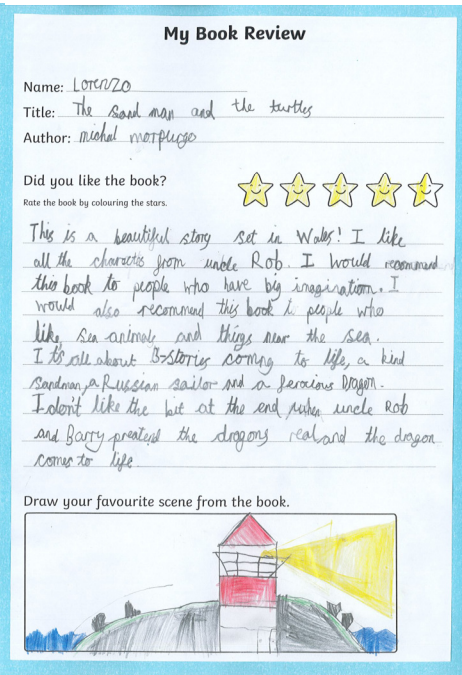 My Book Review
Name: Lorenzo
Title: The sand man and the turtles
Author: michal morpurgo
Did you like the book?
Rate the book by colouring the stars.
This is a beautiful story set in Wales! I like
all the characters from uncle Rob. I would recommend
this book to people who have big imagination. I
would also recommend this book to people who
like, sea animals and things near the sea.
I ts all about 3-stories coming to life, a kind
Sandman, a Russian sailor and a ferocious Dragon.
I don't like the bit at the end when uncle Rob
and Barry preatend the dragons real and the dragon
comes to life.
Draw your favourite scene from the book.